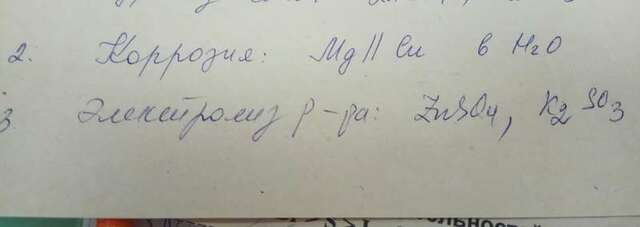 2. Коррозия: Mg || Cu в H2O
3. Электролиз р-ра: ZnSO4, K2SO3